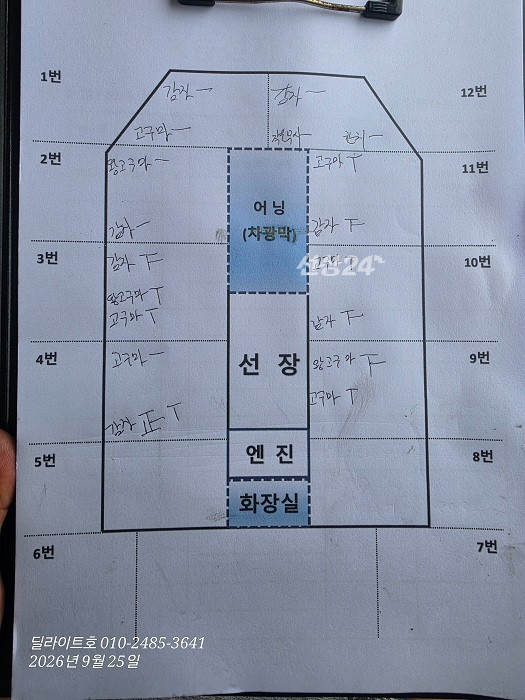 1번
감자 一
감자 一
12번
고구마 一
작은무사 一
한치 一
2번
왕고구마 一
고구마 丅
11번
어닝
(차광막)
감자 一
감자 下
3번
감자 下
고구마 丅
10번
선상24
왕고구마 丅
고구마 丅
감자 下
4번
고구마 一
선 장
왕고구마 下
9번
고구마 丅
감자 正 丅
5번
엔 진
8번
화장실
6번
7번
딜라이트호 010-2485-3641
2026년 9월 25일